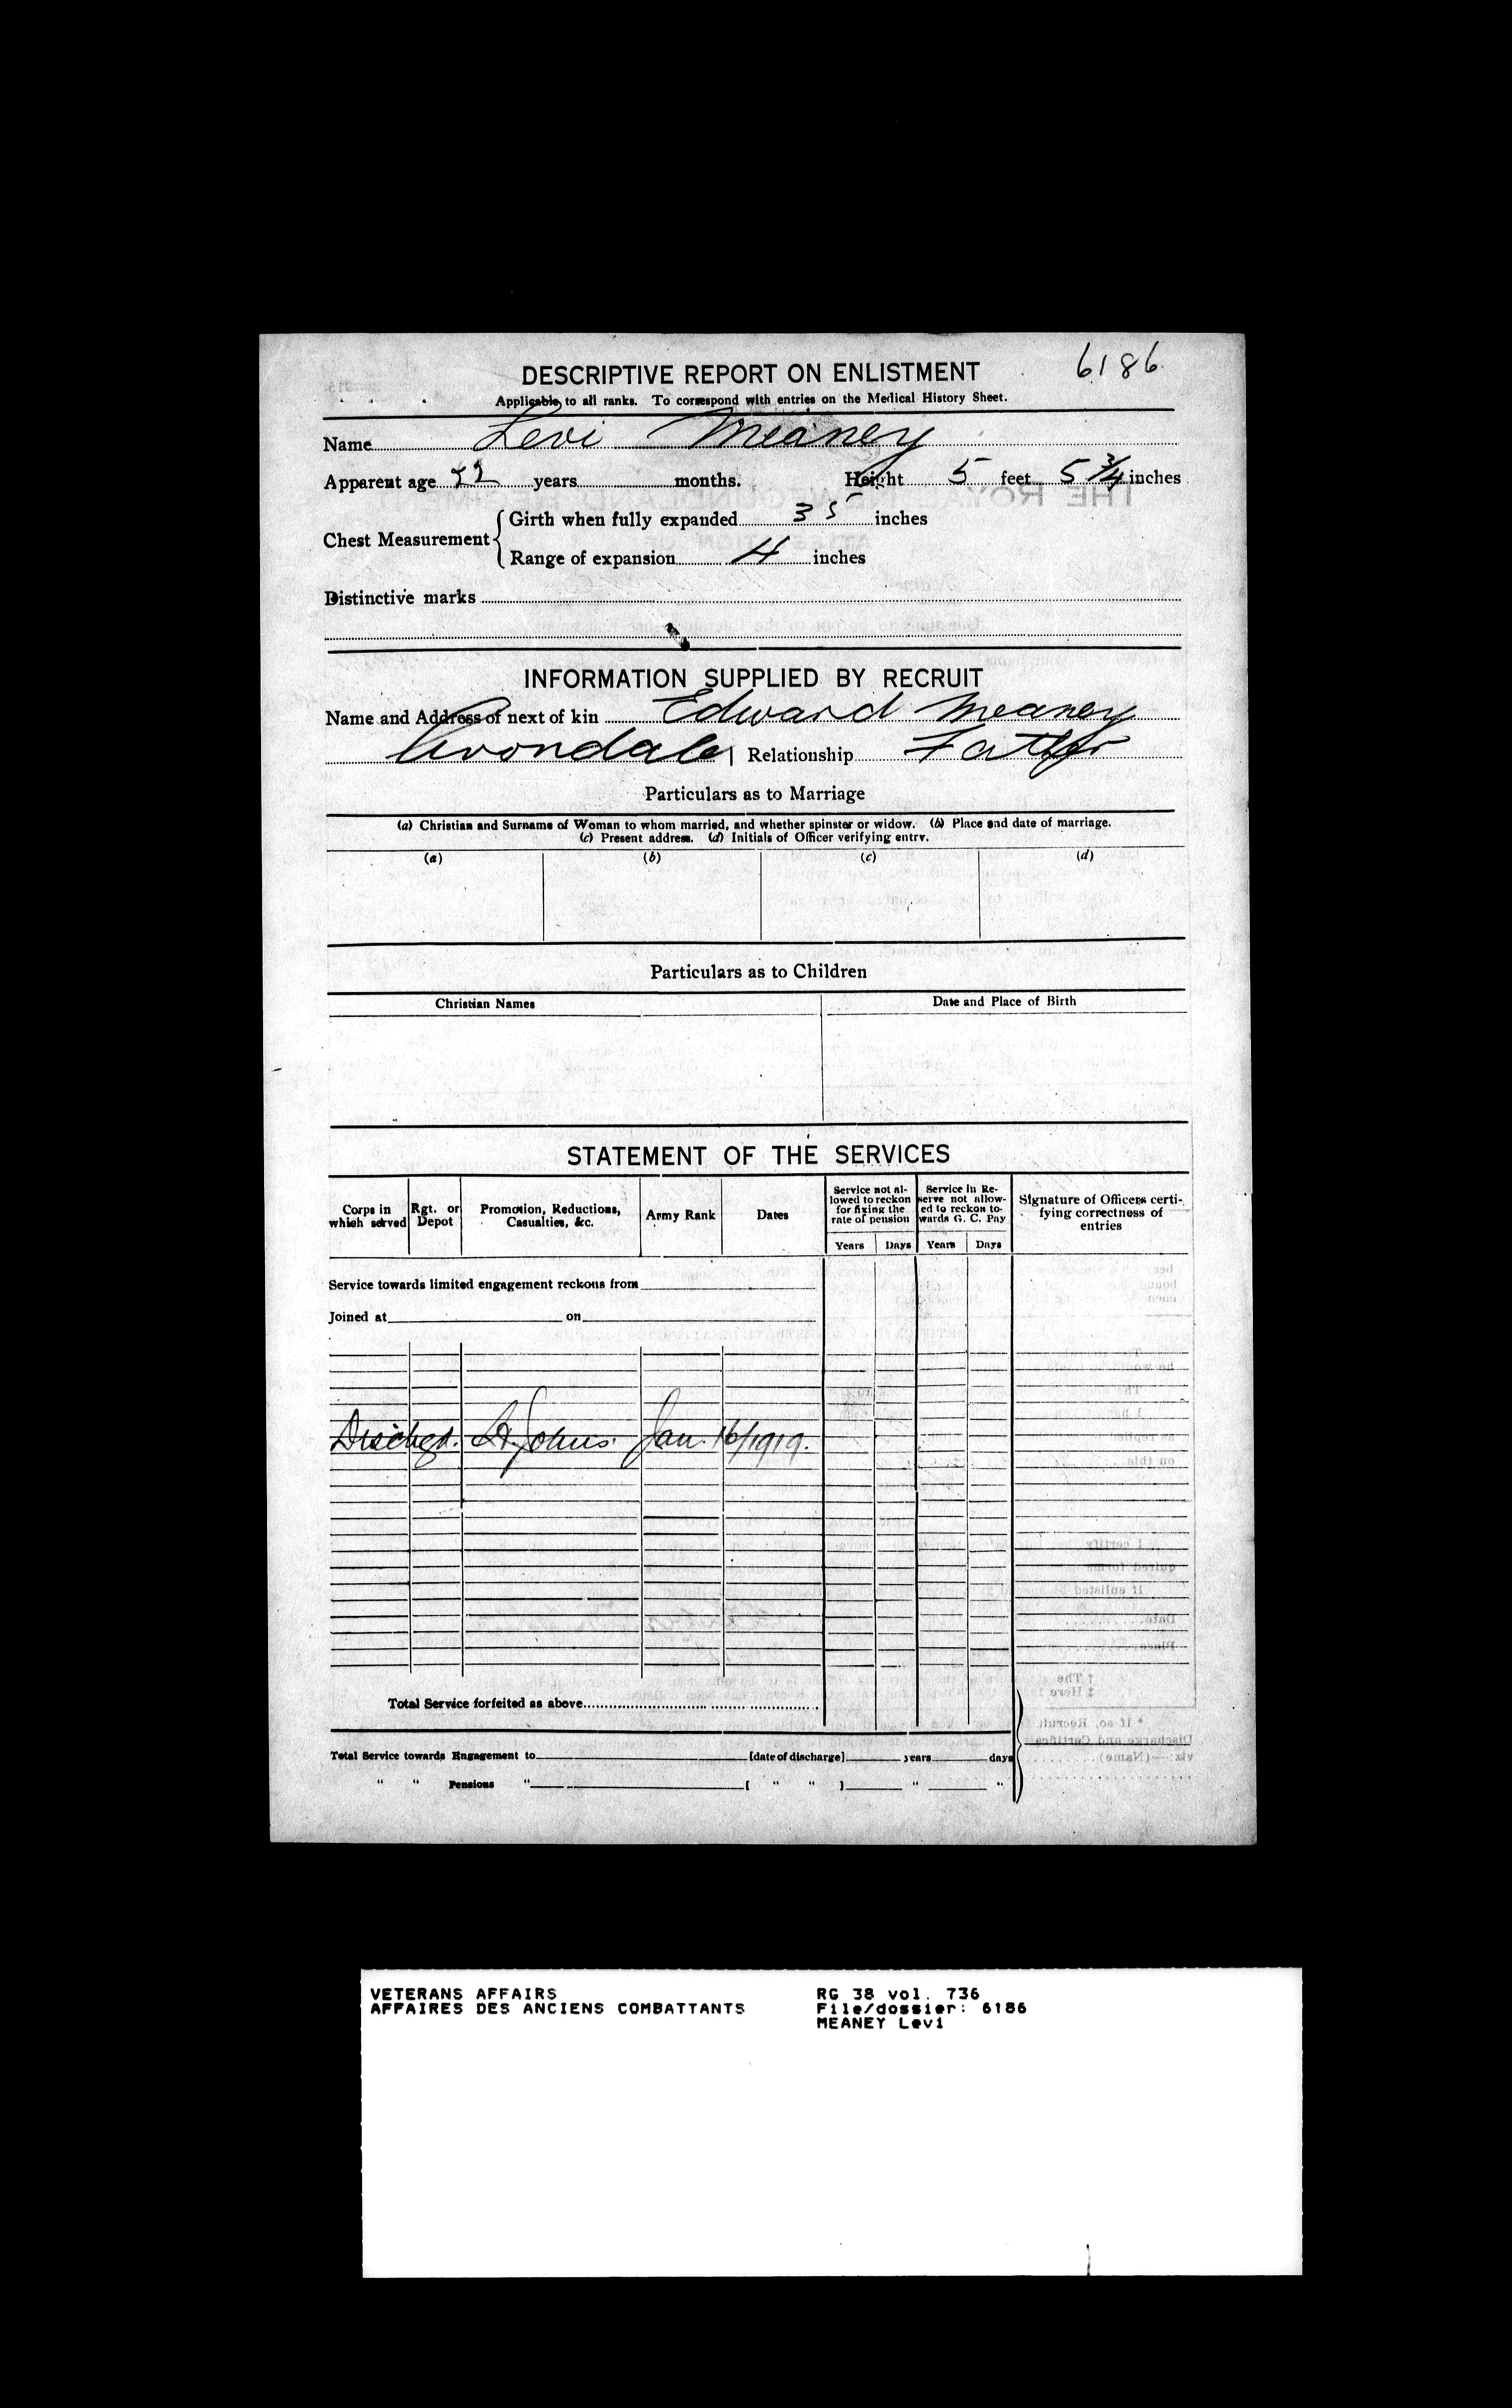 DESCRIPTIVE REPORT ON ENLISTMENT 6186
Applicable to all ranks. To correspond with entries on the Medical History Sheet.
Name Levi Meaney
Apparent age 22 years months. Height 5 feet 5 3/4 inches
Chest Measurement { Girth when fully expanded 35 inches
Range of expansion 4 inches
Distinctive marks
INFORMATION SUPPLIED BY RECRUIT
Name and Address of next of kin Edward Meaney
Avondale | Relationship Father
Particulars as to Marriage
(a) Christian and Surname of Woman to whom married, and whether spinster or widow. (b) Place and date of marriage.
(c) Present address. (d) Initials of Officer verifying entry.
(a) (b) (c) (d)
Particulars as to Children
Christian Names Date and Place of Birth
STATEMENT OF THE SERVICES
Corps in which served Rgt. or Depot Promotion, Reductions, Casualties, &c. Army Rank Dates Service not allowed to reckon for fixing the rate of pension Service in Reserve not allowed to reckon towards G. C. Pay Signature of Officers certifying correctness of entries
Years Days Years Days
Service towards limited engagement reckons from
Joined at on
Dischgd. St. Johns. Jan. 16/1919.
Total Service forfeited as above
Total Service towards Engagement to [date of discharge] years days
" " Pensions " [ " " ] " "
VETERANS AFFAIRS RG 38 vol. 736
AFFAIRES DES ANCIENS COMBATTANTS File/dossier: 6186
MEANEY Levi